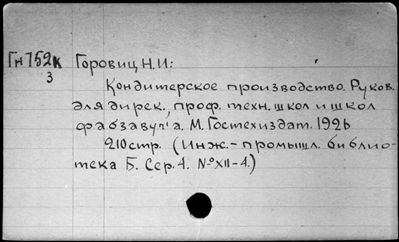 Гн 752к Горовиц Н.И:
3
Кондитерское производство. Руков.
для дирек., проф. техн. школ и школ
фабзавуча. М. Гостехиздат. 1926
210 стр. (Инж.-промышл. библио-
тека Б. Сер. 4. № XII-4.)